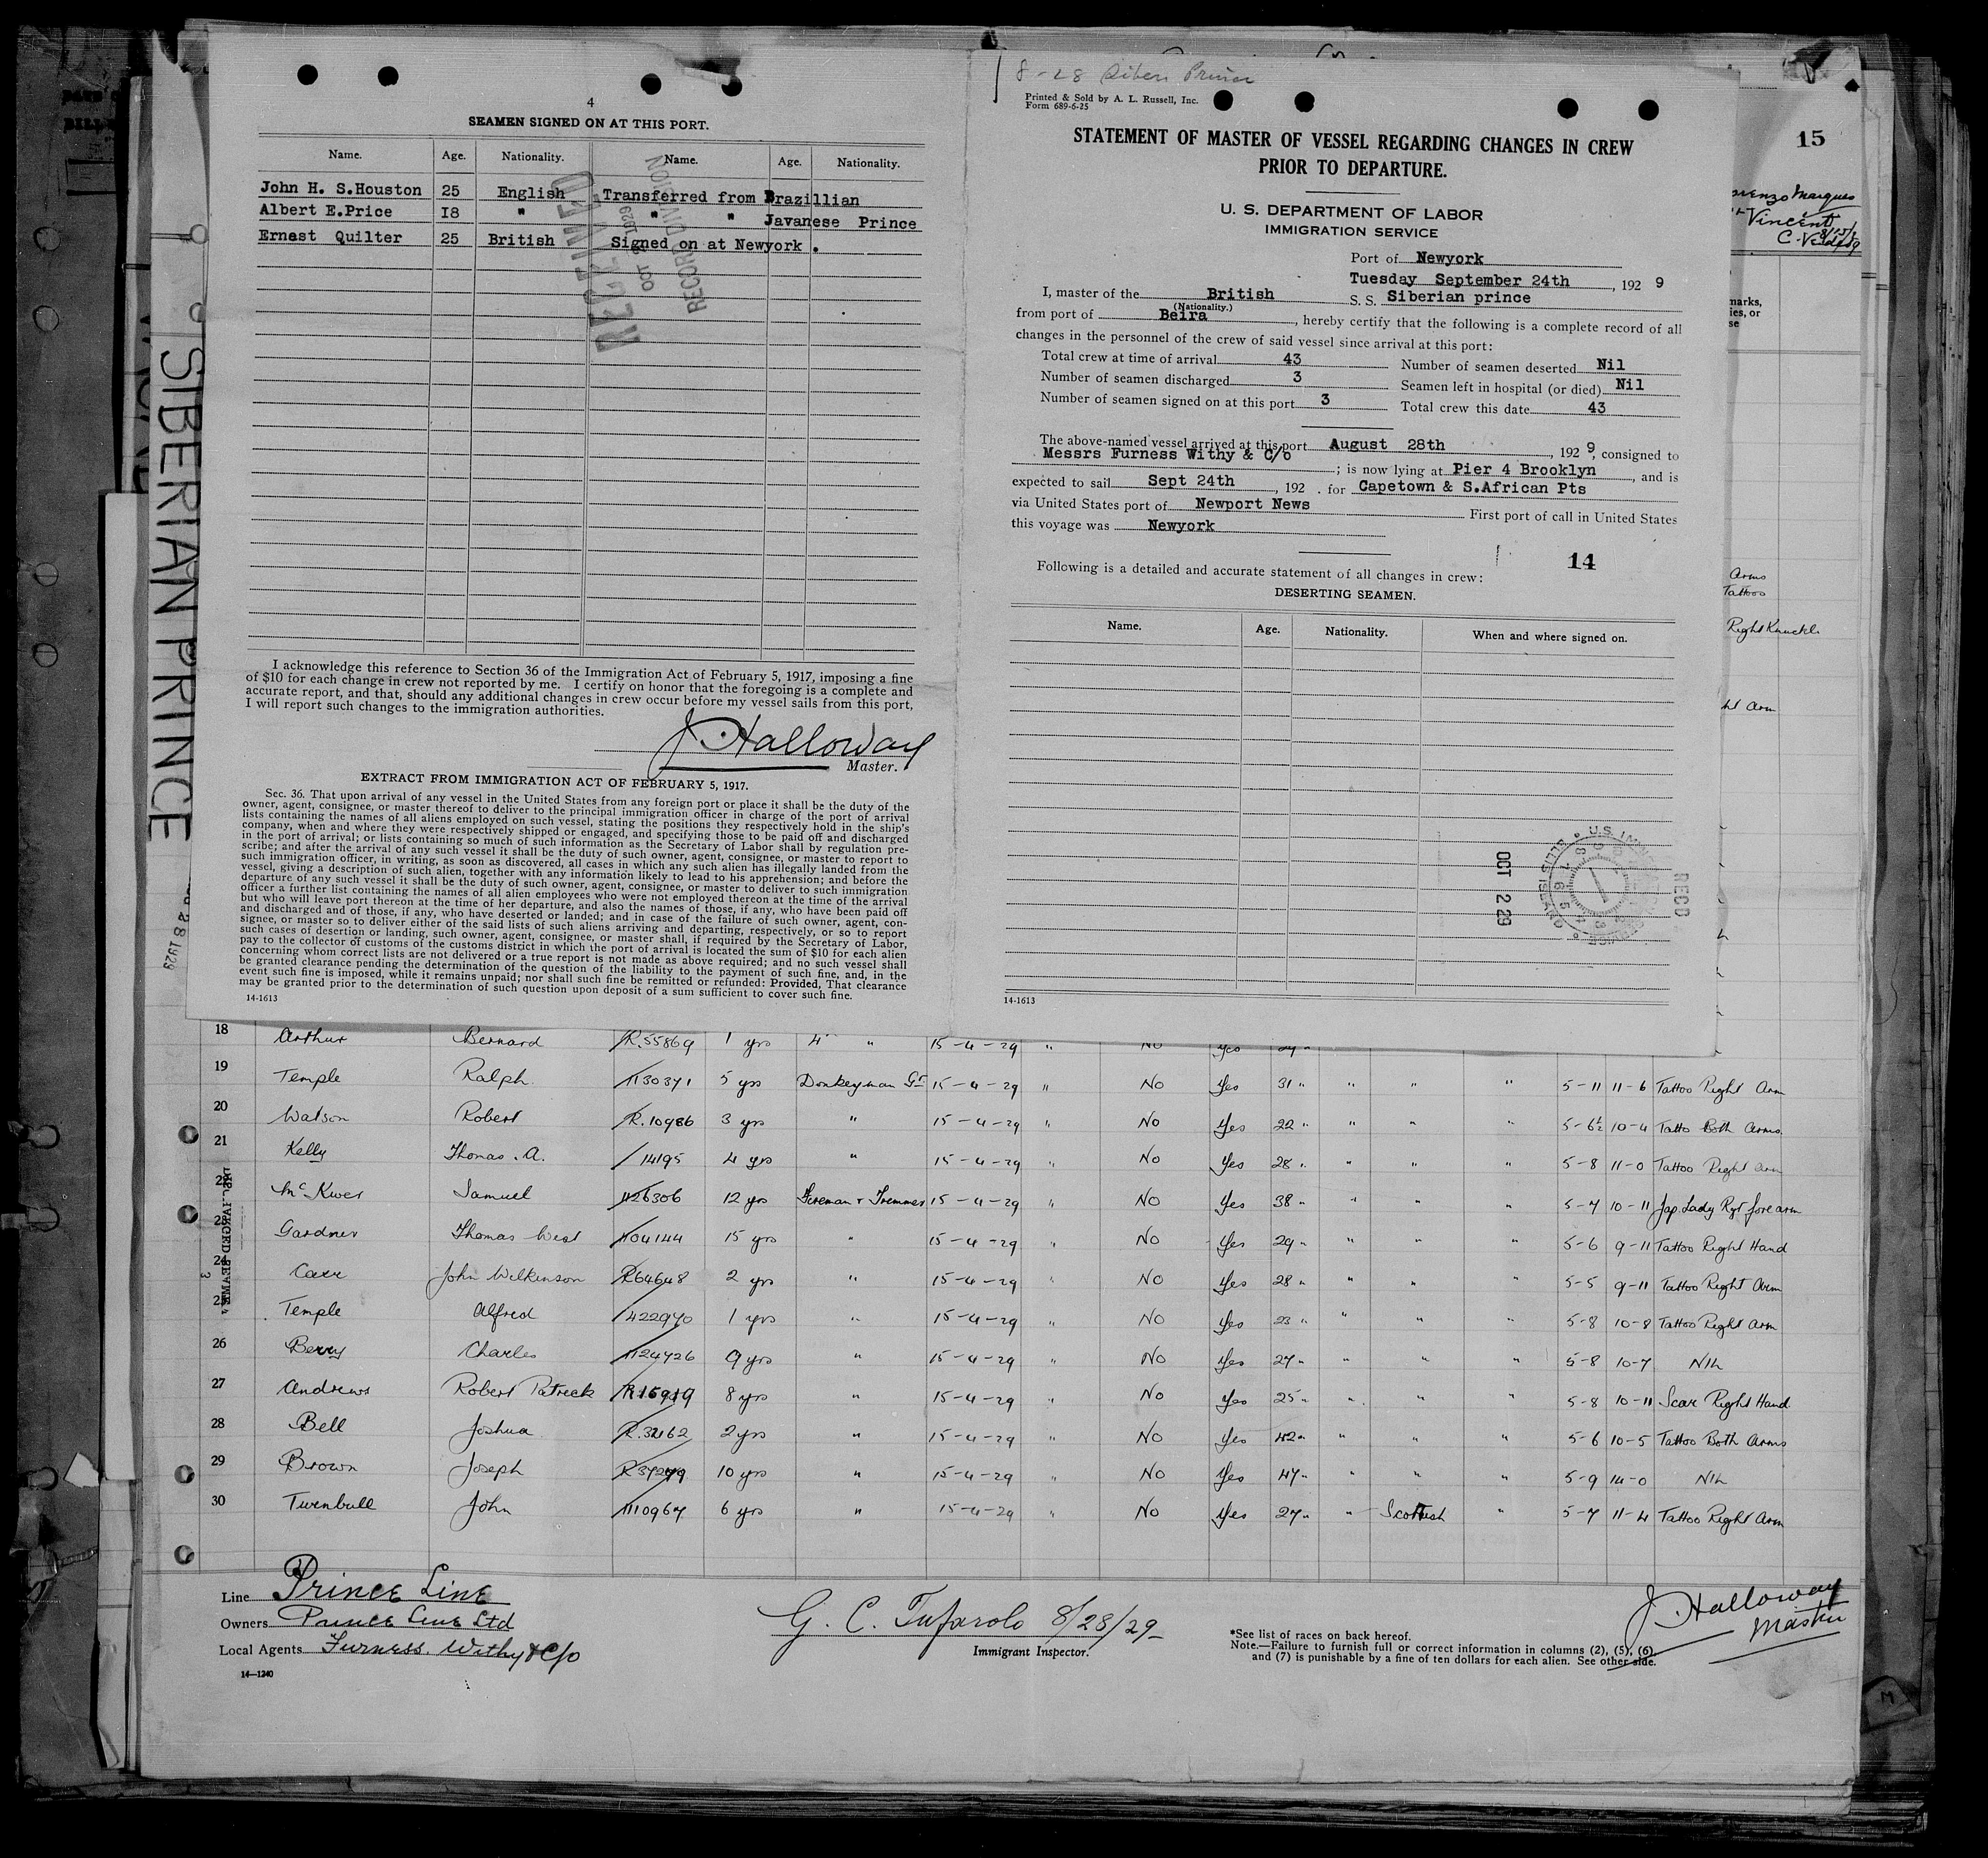 4
SEAMEN SIGNED ON AT THIS PORT.
Name. Age. Nationality. Name. Age. Nationality.
John H. S.Houston 25 English Transferred from Brazillian
Albert E.Price I8 " " " Javanese Prince
Ernest Quilter 25 British Signed on at Newyork .
RECORD DIVISION
I acknowledge this reference to Section 36 of the Immigration Act of February 5, 1917, imposing a fine
of $10 for each change in crew not reported by me. I certify on honor that the foregoing is a complete and
accurate report, and that, should any additional changes in crew occur before my vessel sails from this port,
I will report such changes to the immigration authorities.
J. Halloway
Master.
EXTRACT FROM IMMIGRATION ACT OF FEBRUARY 5, 1917.
Sec. 36. That upon arrival of any vessel in the United States from any foreign port or place it shall be the duty of the
owner, agent, consignee, or master thereof to deliver to the principal immigration officer in charge of the port of arrival
lists containing the names of all aliens employed on such vessel, stating the positions they respectively hold in the ship's
company, when and where they were respectively shipped or engaged, and specifying those to be paid off and discharged
in the port of arrival; or lists containing so much of such information as the Secretary of Labor shall by regulation pre-
scribe; and after the arrival of any such vessel it shall be the duty of such owner, agent, consignee, or master to report to
such immigration officer, in writing, as soon as discovered, all cases in which any such alien has illegally landed from the
vessel, giving a description of such alien, together with any information likely to lead to his apprehension; and before the
departure of any such vessel it shall be the duty of such owner, agent, consignee, or master to deliver to such immigration
officer a further list containing the names of all alien employees who were not employed thereon at the time of the arrival
but who will leave port thereon at the time of her departure, and also the names of those, if any, who have been paid off
and discharged and of those, if any, who have deserted or landed; and in case of the failure of such owner, agent, con-
signee, or master so to deliver either of the said lists of such aliens arriving and departing, respectively, or so to report
such cases of desertion or landing, such owner, agent, consignee, or master shall, if required by the Secretary of Labor,
pay to the collector of customs of the customs district in which the port of arrival is located the sum of $10 for each alien
concerning whom correct lists are not delivered or a true report is not made as above required; and no such vessel shall
be granted clearance pending the determination of the question of the liability to the payment of such fine, and, in the
event such fine is imposed, while it remains unpaid; nor shall such fine be remitted or refunded: Provided, That clearance
may be granted prior to the determination of such question upon deposit of a sum sufficient to cover such fine.
14-1613
SIBERIAN PRINCE
28 1929
8-28 Siben Prince
Printed & Sold by A. L. Russell, Inc.
Form 689-6-25
STATEMENT OF MASTER OF VESSEL REGARDING CHANGES IN CREW
PRIOR TO DEPARTURE.
U. S. DEPARTMENT OF LABOR
IMMIGRATION SERVICE
Port of Newyork
Tuesday September 24th, 192 9
I, master of the British S. S. Siberian prince
(Nationality.)
from port of Beira, hereby certify that the following is a complete record of all
changes in the personnel of the crew of said vessel since arrival at this port:
Total crew at time of arrival 43 Number of seamen deserted Nil
Number of seamen discharged 3 Seamen left in hospital (or died) Nil
Number of seamen signed on at this port 3 Total crew this date 43
The above-named vessel arrived at this port August 28th, 192 9, consigned to
Messrs Furness Withy & C/o ; is now lying at Pier 4 Brooklyn, and is
expected to sail Sept 24th, 192 . for Capetown & S.African Pts
via United States port of Newport News First port of call in United States
this voyage was Newyork
14
Following is a detailed and accurate statement of all changes in crew:
DESERTING SEAMEN.
Name. Age. Nationality. When and where signed on.
OCT 2 29
RECD
14-1613
15
Vincent
marks,
ies, or
se
Arms
Tattoo
Right Knuckle
ht Arm
18 Arthur Bernard R.55869 1 yrs 4th " 15-4-29 " No Yes
19 Temple Ralph. 1130371 5 yrs Donkeyman Gr 15-4-29 " No Yes 31 " " " " 5-11 11-6 Tattoo Right Arm
20 Watson Robert R.10986 3 yrs " 15-4-29 " No Yes 22 " " " " 5-6½ 10-4 Tatto Both Arms.
21 Kelly Thomas. A. 14195 4 yrs " 15-4-29 " No Yes 28 " " " " 5-8 11-0 Tattoo Right Arm
22 Samuel 1126306 12 yrs Fireman & Trimmer 15-4-29 " No Yes 38 " " " 5-7 10-11 Jap. Lady Rgt fore arm
23 Gardner Thomas West 1104144 15 yrs " 15-4-29 " No Yes 29 " " " " 5-6 9-11 Tattoo Right Hand
24 Carr John Wilkinson R64648 2 yrs " 15-4-29 " No Yes 28 " " " " 5-5 9-11 Tattoo Right Arm
25 Temple Alfred 422970 1 yrs " 15-4-29 " No Yes 23 " " " " 5-8 10-8 Tattoo Right Arm
26 Berry Charles 1124726 9 yrs " 15-4-29 " No Yes 27 " " " " 5-8 10-7 Nil
27 Andrews Robert Patrick 8 yrs " 15-4-29 " No Yes 25 " " " " 5-8 10-11 Scar Right Hand
28 Bell Joshua 2 yrs " 15-4-29 " No Yes 42 " " " " 5-6 10-5 Tattoo Both Arms
29 Brown Joseph 10 yrs " 15-4-29 " No Yes 47 " " " " 5-9 14-0 Nil
30 Turnbull John 1110967 6 yrs " 15-4-29 " No Yes 27 " " Scottish " 5-7 11-4 Tattoo Right Arm
Line Prince Line
Owners Prince Line Ltd
Local Agents Furness. Withy & C/o
14—1240
G. C. Tufarolo 8/28/29
Immigrant Inspector.
*See list of races on back hereof.
Note.—Failure to furnish full or correct information in columns (2), (5), (6),
and (7) is punishable by a fine of ten dollars for each alien. See other side.
J. Halloway
Master
M